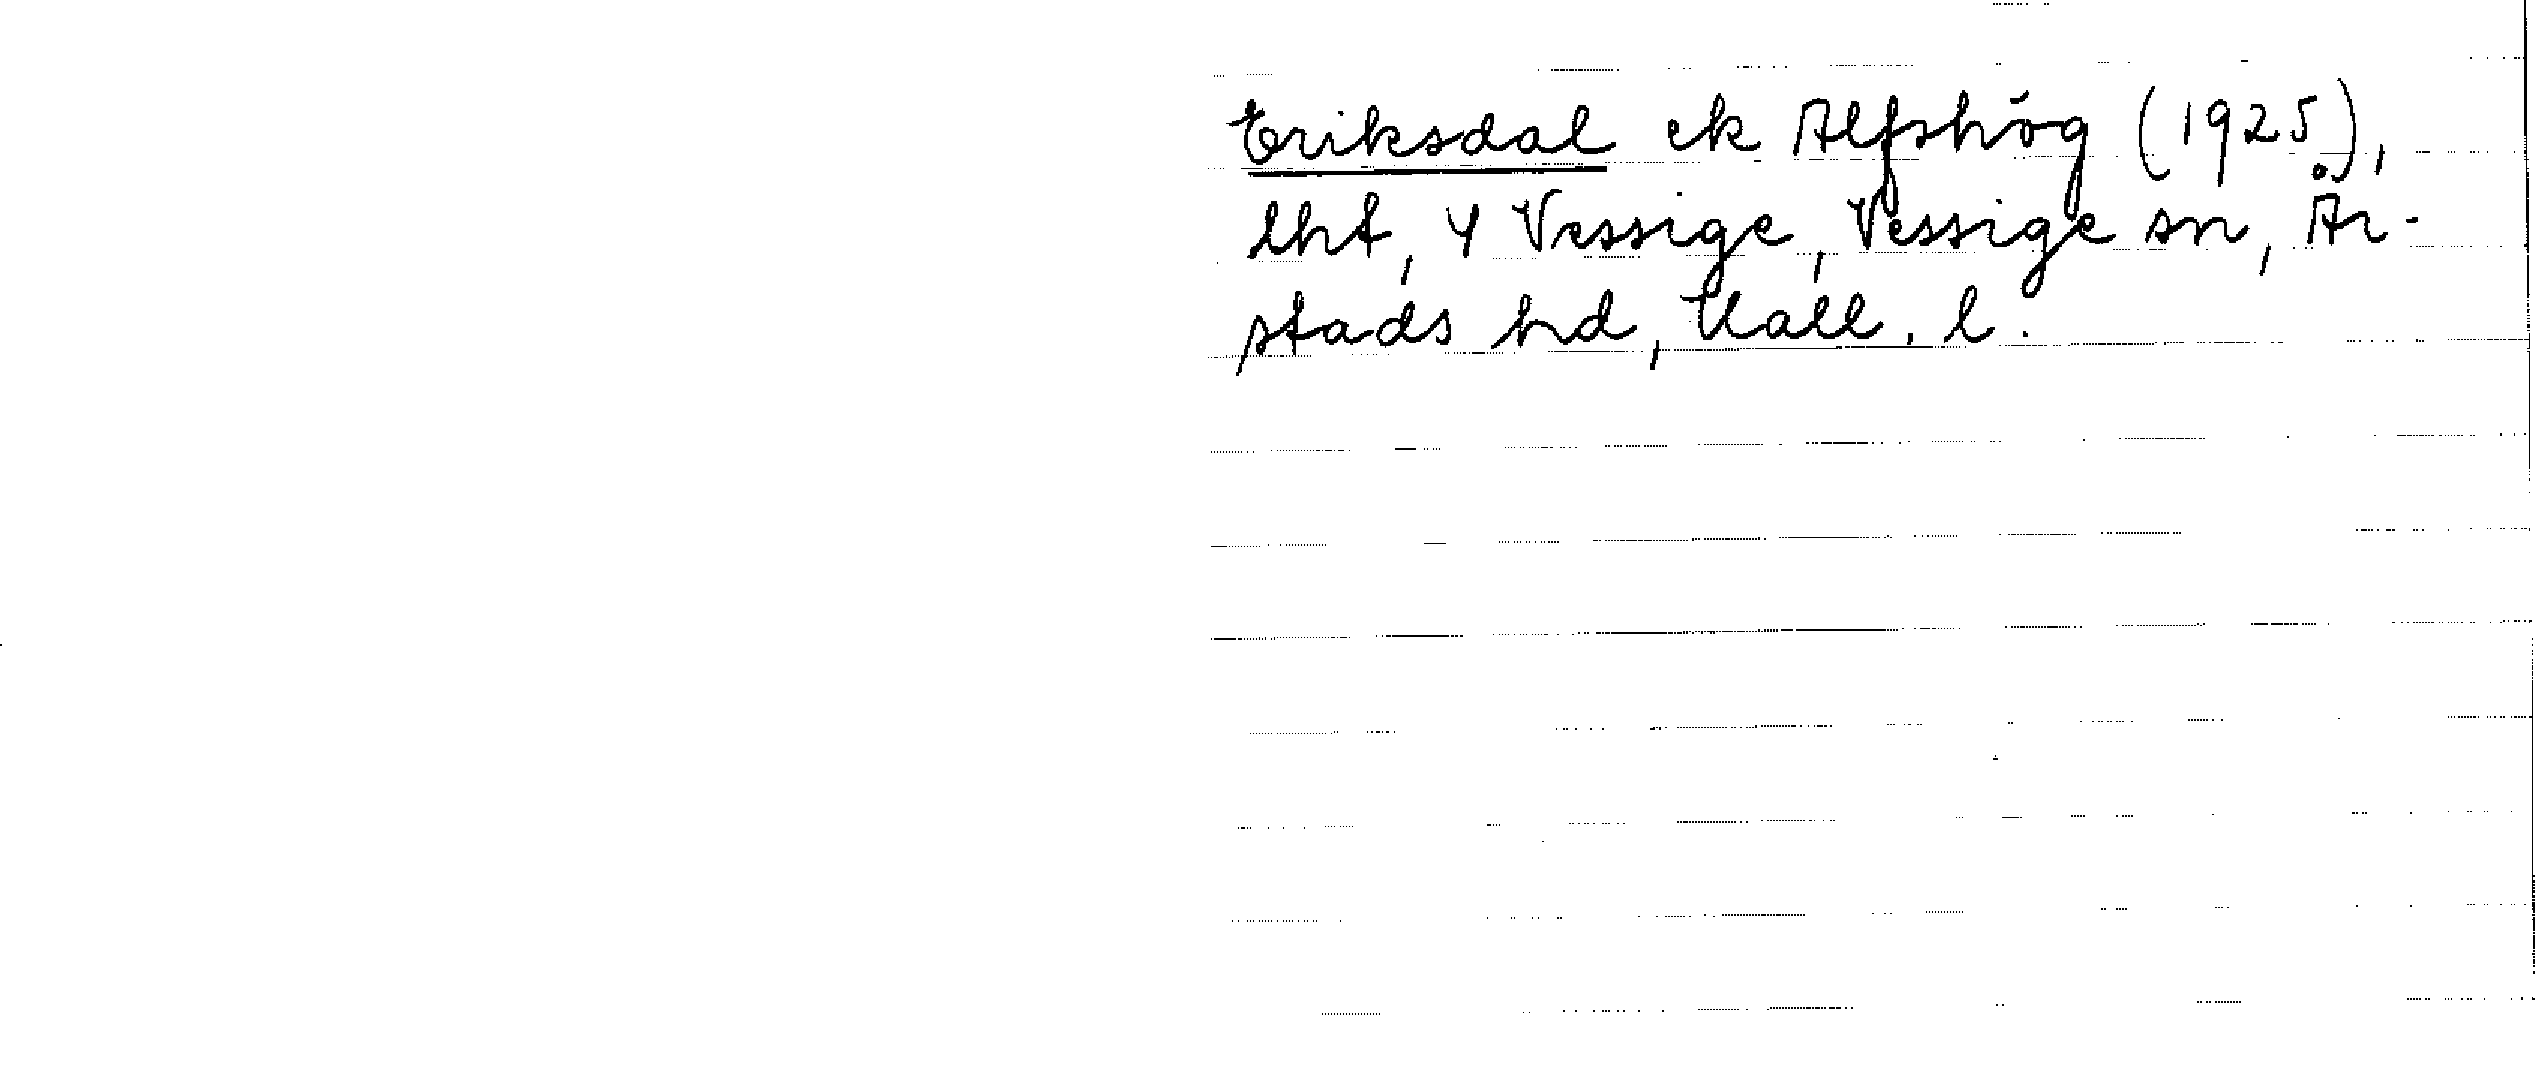 Eriksdal ek Alfshög (1925),
lht, 4 Vessige, Vessige sn, År-
stads hd, Hall. l.